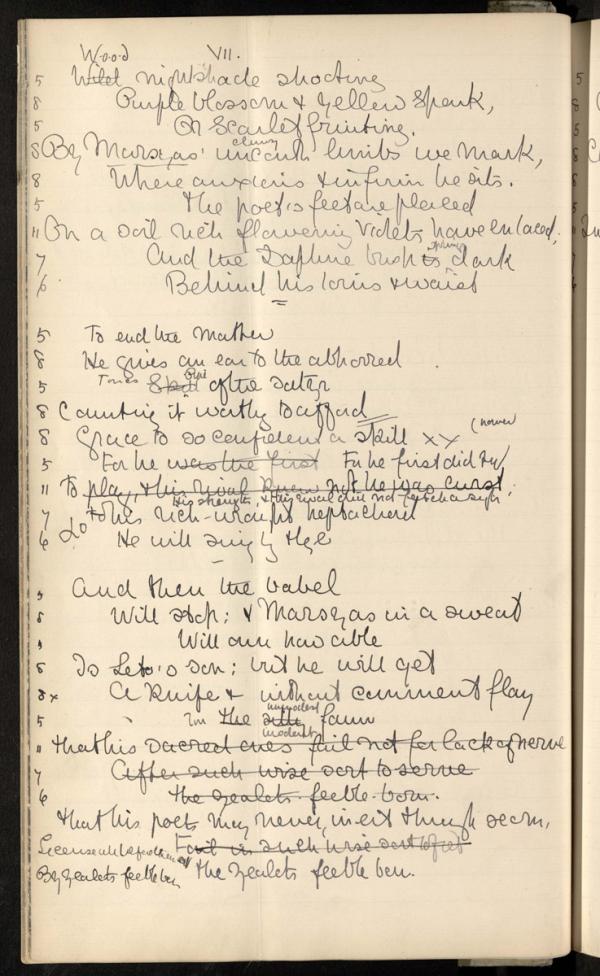 Wood VII.
5 Wild nightshade shooting
8 Purple blossom & yellow spark,
5 Or scarlet fruiting.
clumsy
8 By Marsyas' uncouth limbs we mark,
8 Where anxious & infirm he sits.
5 The poet's feet are placed
11 On a soil rich flowering violets have enlaced,
spring
7 And the Daphne bush is dark
6 Behind his loins & waist
5 To end the matter
8 He gives an ear to the abhorred
5 Tones of the Satyr
8 Counting it worthy to afford
8 Grace to so confident a skill xx
5 For he was the first For he first did try
11 To play, & his rival knew not he was curst,
His strength, & his rival did not fetch a sigh
7 Lo to his rich-wrought heptachord
6 He will sing by & bye
5 And then the babel
8 Will stop; & Marsyas in a sweat
5 Will own how able
8 Is Leto's son; but he will get
8 x A knife & without comment flay
immodest
5 the faun
moderate
11 That his sacred ones fail not for lack of nerve
7 After such wise sort to serve
6 The zealots feeble born.
That his poets may never, insist through scorn,
in such wise sort
By zealots feeble born The zealots feeble born.